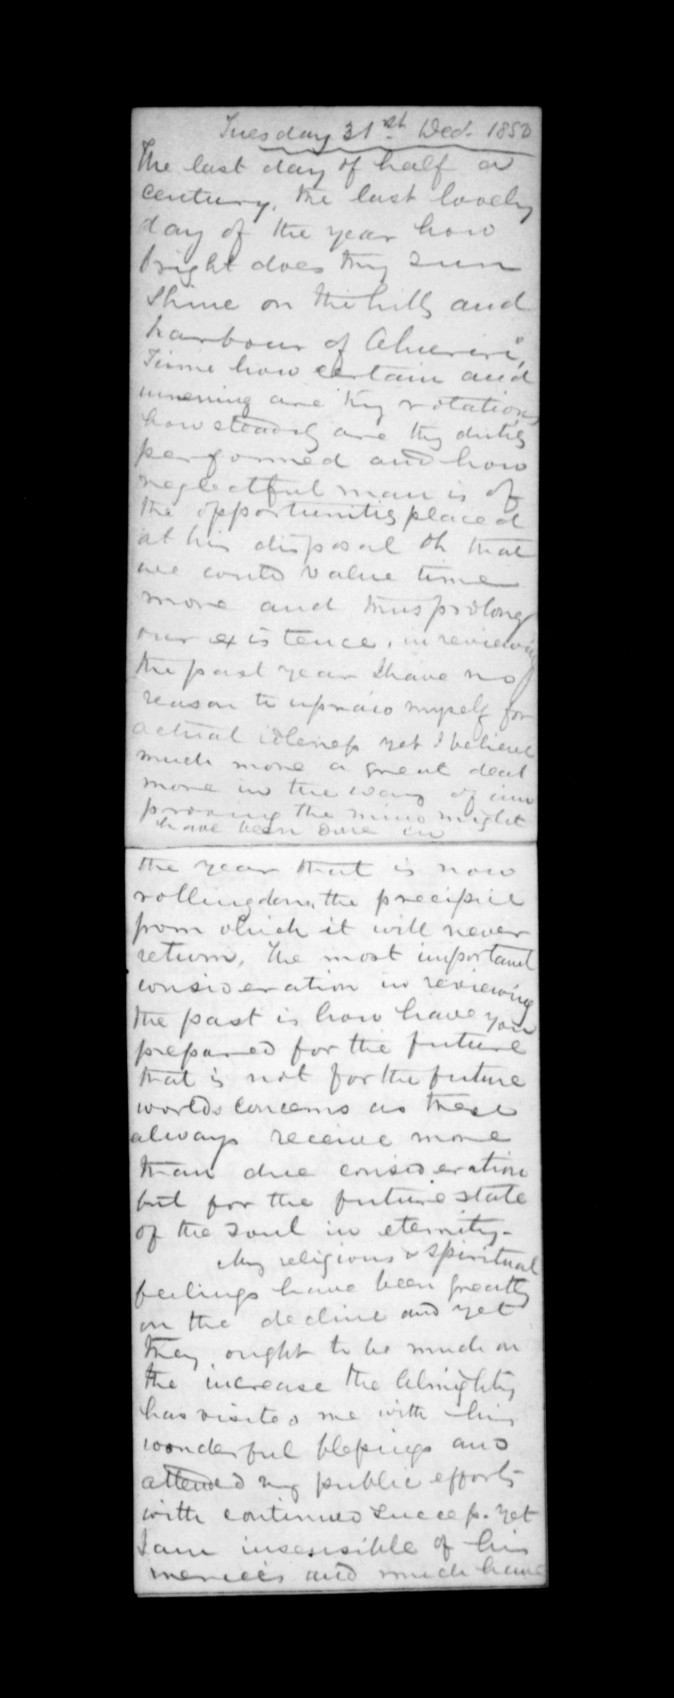 Tuesday 31st Dec. 1850
The last day of half a
century, the last lovely
day of the year how
bright does thy sun
shine on the hills and
harbour of Ahuriri,
Time how certain and
unvarying are thy rotations
how steadily are thy duties
performed and how
neglectful man is of
the opportunities placed
at his disposal Oh that
we could value time
more and thus prolong
our existence, in reviewing
the past year I have no
reason to upbraid myself for
actual idleness yet I believe
much more a great deal
more in the way of im
proving the mind might
have been done in
the year that is now
rolling down the precipice
from which it will never
return. The most important
consideration in reviewing
the past is how have you
prepared for the future
that is not for the future
worlds concerns as these
always receive more
than due consideration
but for the future state
of the soul in eternity.
My religious & spiritual
feelings have been greatly
on the decline and yet
they ought to be much on
the increase the Almighty
has visited me with his
wonderful blessings and
attended my public efforts
with continued success. yet
I am insensible of his
mercies and much have